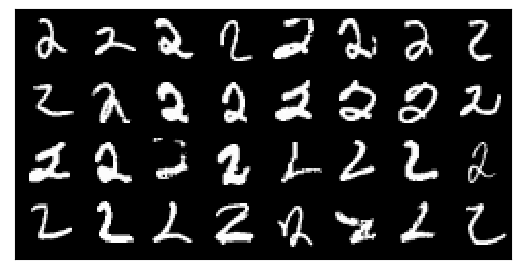 2 2 2 2 2 2 2 2
2 2 2 2 2 2 2 2
2 2 2 2 2 2 2
2 2 2 2 2 2 2